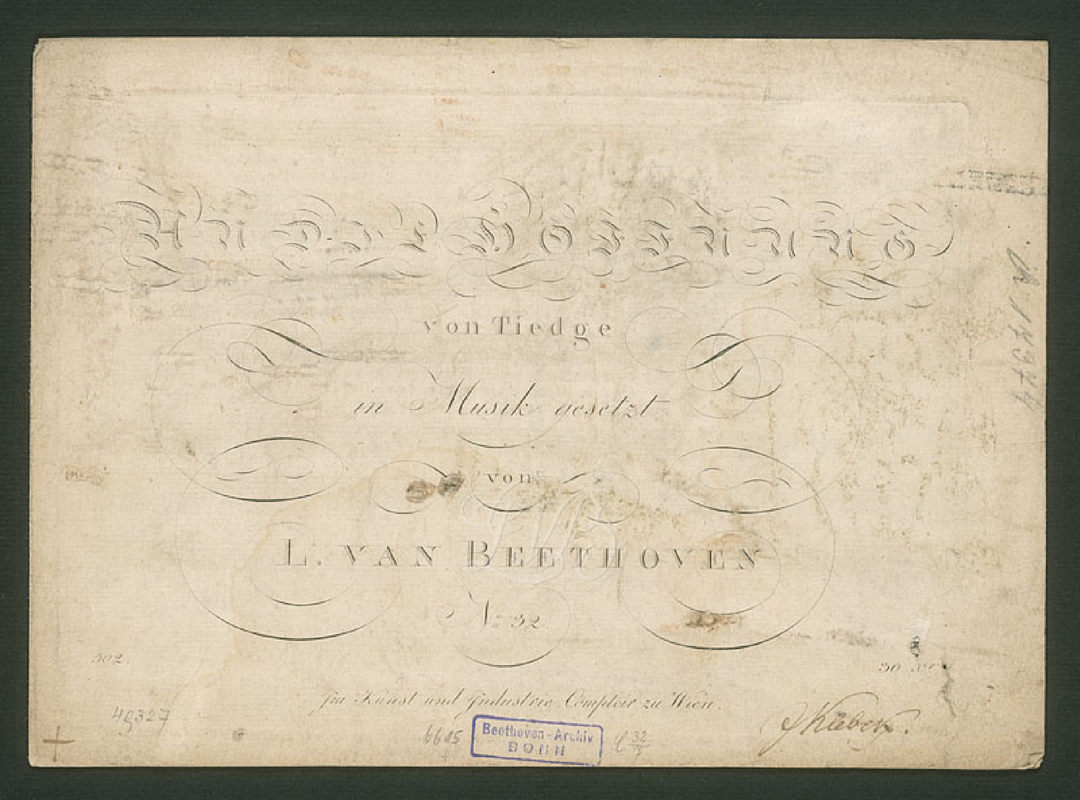 AN DIE HOFFNUNG
von Tiedge
in Musik gesetzt
von
L. VAN BEETHOVEN
No 32
502.
30 xr
Im Kunst und Industrie Comptoir zu Wien.
49327
6615
Beethoven-Archiv
BONN
C 32